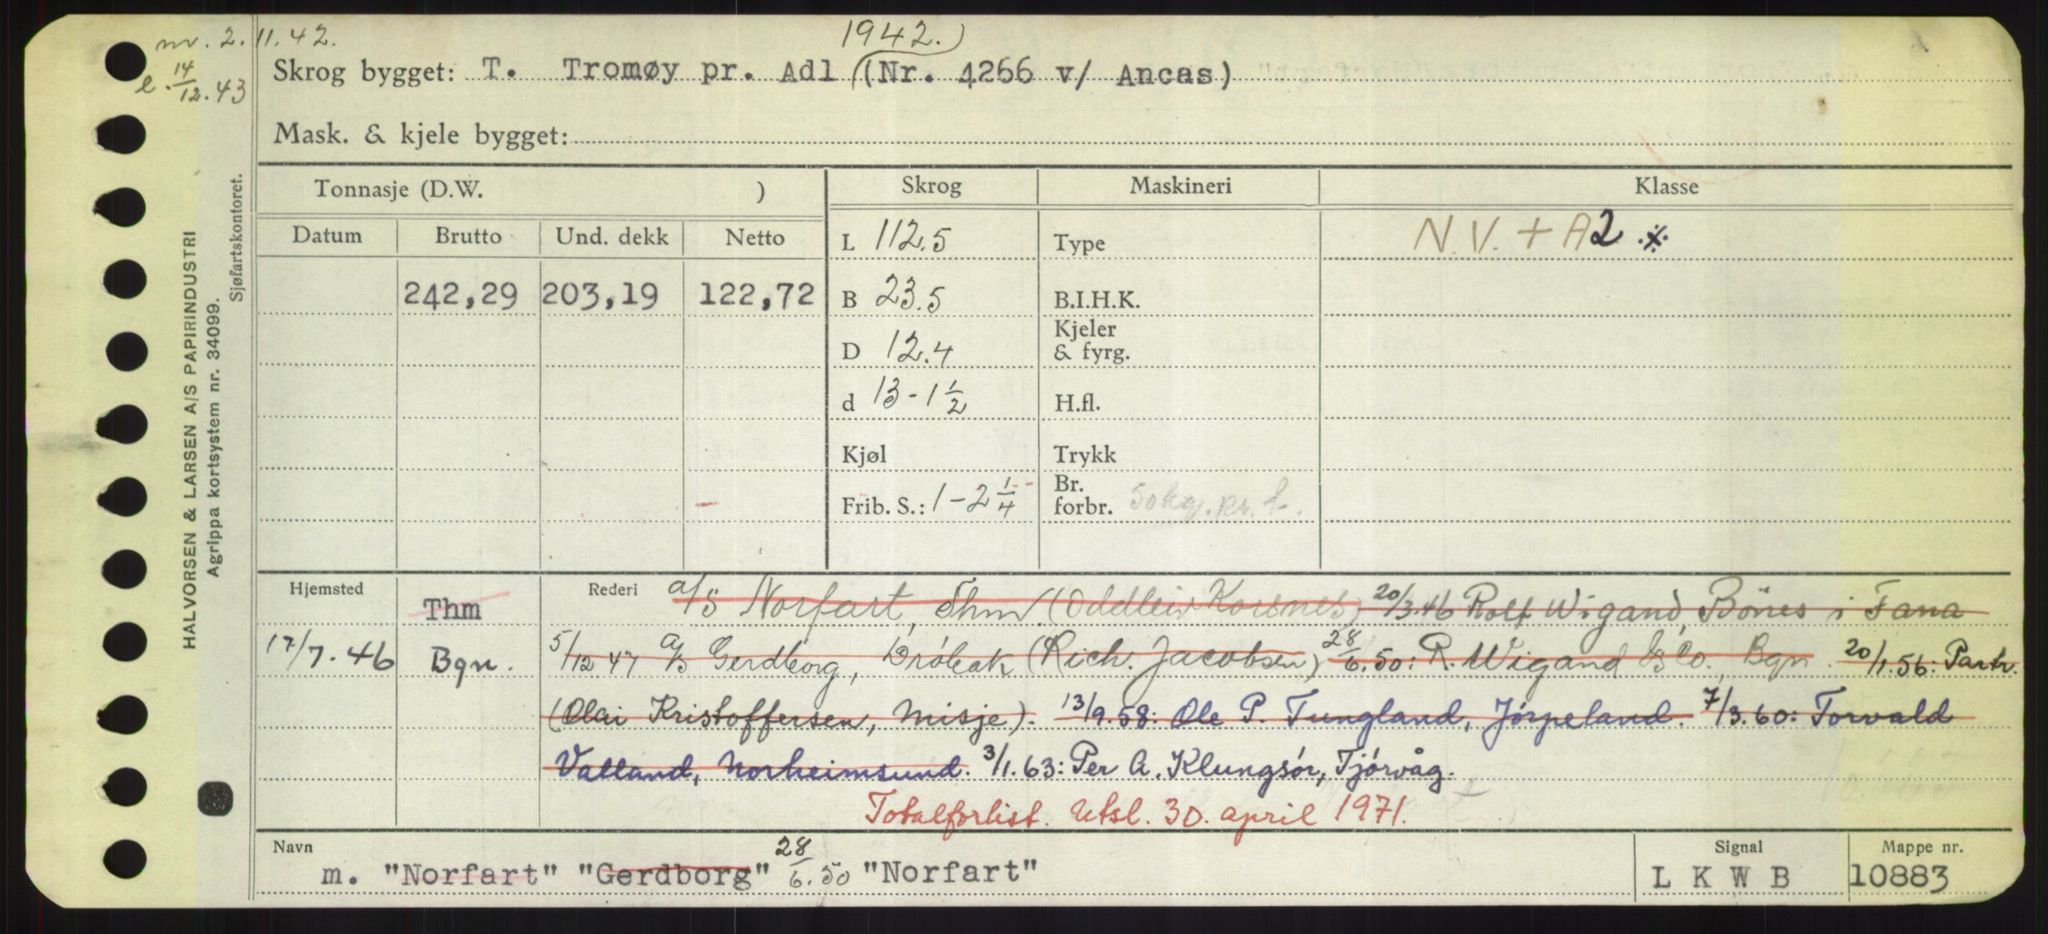 nv. 2.11.42.
1942.)
e. 14/12.43
Skrog bygget: T. Tromøy pr. Adl (Nr. 4266 v/ Ancas)
Mask. & kjele bygget:
Tonnasje (D.W. ) Skrog Maskineri Klasse
Datum Brutto Und. dekk Netto L 112.5 Type N.V. + A2 ⁜
242,29 203,19 122,72 B 23.5 B.I.H.K.
D 12.4 Kjeler & fyrg.
d 13-1 1/2 H.fl.
Kjøl Trykk
Frib. S.: 1-2 1/4 Br. forbr. 50kg. pr. t.
Hjemsted Thm Rederi a/s Norfart, Thm (Oddleiv Korsnes) 20/3.46 Rolf Wigand, Bönes i Fana
17/7.46 Bgn. 5/12 47 a/s Gerdborg, Dröbak (Rich. Jacobsen) 28/6.50: R. Wigand & Co. Bgn. 20/1.56: Partr.
(Olai Kristoffersen, Misje). 13/9.58: Ole P. Tungland, Jørpeland. 7/3.60: Torvald
Valland, Norheimsund. 3/1.63: Per A. Klungsör, Tjörvåg.
Totalforlist. Utsl. 30. april 1971.
Navn Signal Mappe nr.
m. "Norfart" "Gerdborg" 28/6.50 "Norfart" L K W B 10883
HALVORSEN & LARSEN A/S PAPIRINDUSTRI
Agrippa kortsystem nr. 34099.
Sjøfartskontoret.